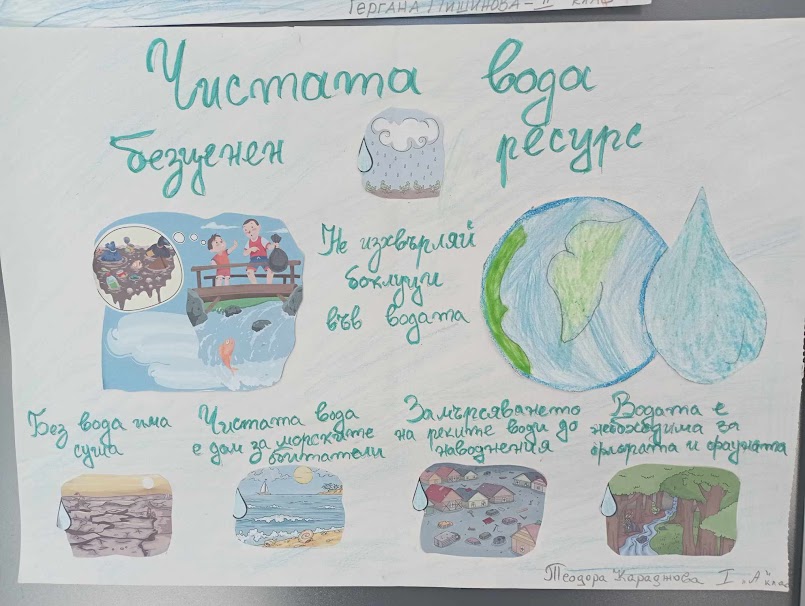 Гергана Пишинова - II клас
Чистата вода
безценен ресурс
Не изхвърляй
боклуци
във водата
Без вода има
суша
Чистата вода
е дом за морските
обитатели
Замърсяването
на реките води до
наводнения
Водата е
необходима за
флората и фауната
Теодора Караджова I "А" клас